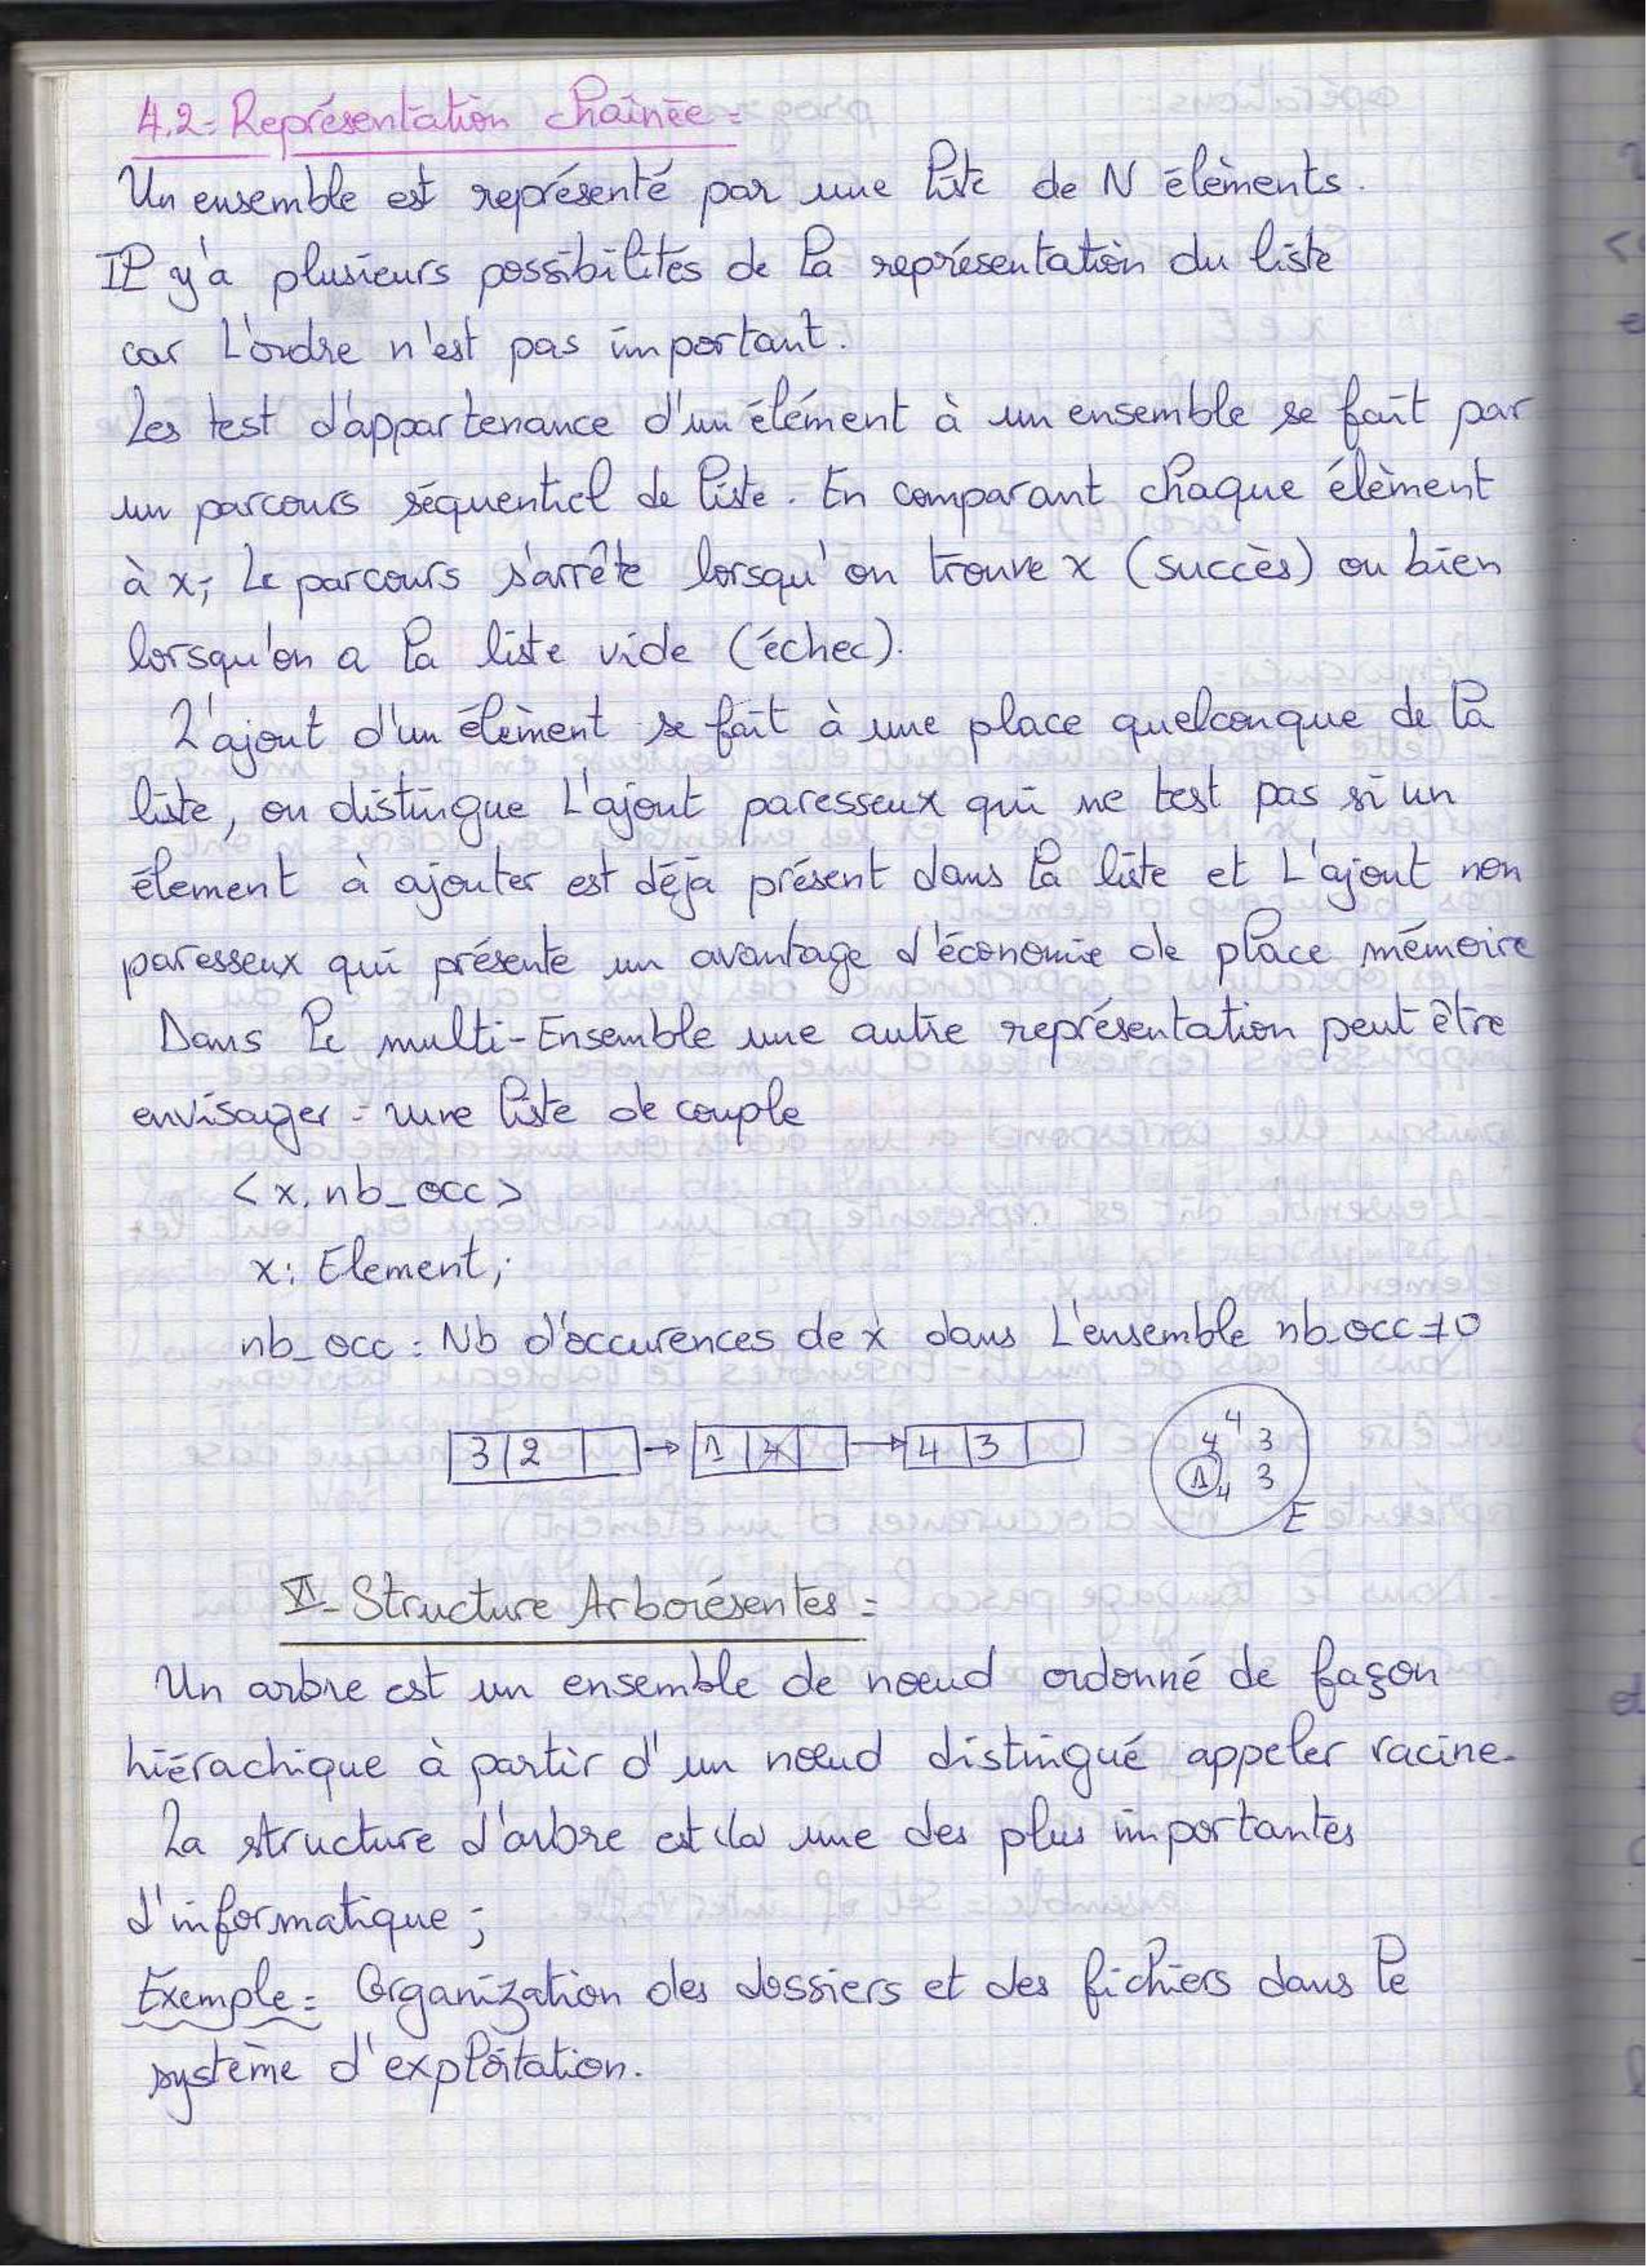 4.2- Représentation chaînée =
Un ensemble est représenté par une liste de N élèments.
Il y'a plusieurs possibilités de la représentation du liste
car L'ordre n'est pas important.
Les test d'appartenance d'un élément à un ensemble se fait par
un parcours séquentiel de liste. En comparant chaque élèment
à x; Le parcours s'arrête lorsqu'on trouve x (succès) ou bien
lorsqu'on a la liste vide (échec).
L'ajout d'un élèment se fait à une place quelconque de la
liste, on distingue L'ajout paresseux qui ne test pas si un
élement à ajouter est déja présent dans la liste et L'ajout non
paresseux qui présente un avantage d'économie de place mémoire
Dans le multi-Ensemble une autre représentation peut être
envisager = une liste de couple
<x, nb_occ>
x: Element;
nb_occ : Nb d'occurences de x dans L'ensemble nb_occ≠0
3 2 → 1 → 4 3
4
4 3
1 4 3
E
VI- Structure Arborésentes =
Un arbre est un ensemble de nœud ordonné de façon
hiérachique à partir d'un nœud distingué appeler racine.
La structure d'arbre est la une des plus importantes
d'informatique;
Exemple = Organization des dossiers et des fichiers dans le
système d'exploitation.